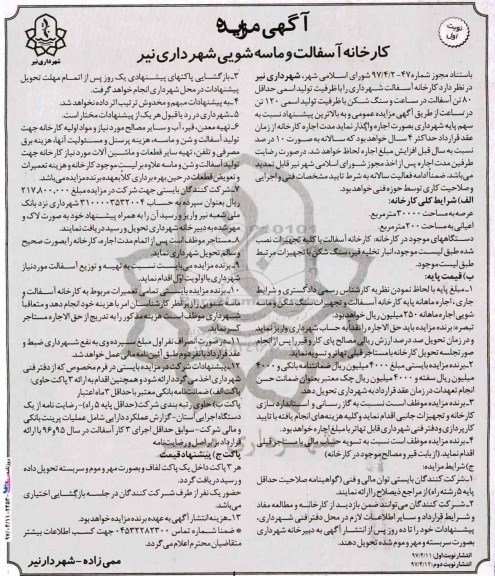 آگهی مزایده
نوبت اول
کارخانه آسفالت و ماسه شویی شهرداری نیر
شهرداری نیر
باستناد مجوز شماره ۴۷-۹۷/۴/۲ شورای اسلامی شهر، شهرداری نیر
در نظر دارد کارخانه آسفالت شهرداری را با ظرفیت تولید اسمی حداقل
۸۰ تن آسفالت در ساعت و سنگ شکن با ظرفیت تولید اسمی ۱۲۰ تن
در ساعت از طریق آگهی مزایده عمومی و به بالاترین پیشنهاد نسبت به
سهم پایه شهرداری بصورت اجاره واگذار نماید مدت اجاره کارخانه از زمان
عقد قرارداد حداکثر ۴ سال خواهد بود که سالانه به صورت ۱۰ در صد
نسبت به سال قبل افزایش مبلغ اجاره لحاظ خواهد شد. در صورت رضایت
طرفین مدت اجاره پس از اخذ مجوز شورای اسلامی شهر نیر قابل تمدید
می باشد، ضمنا ادامه فعالیت سالانه به شرط تایید مشخصات فنی و اجرایی
و صلاحیت کاری توسط حوزه فنی خواهد بود.
الف: شرایط کلی کارخانه:
عرصه به مساحت ۳۰۰۰۰ مترمربع.
اعیانی به مساحت ۲۰۰ مترمربع.
دستگاههای موجود در کارخانه: کارخانه آسفالت با کلیه تجهیزات نصب
شده طبق لیست موجود، انبار تخلیه قیر، سنگ شکن با تجهیزات مرتبط
طبق لیست موجود.
ب) قیمت پایه:
۱-مبلغ پایه با لحاظ نمودن نظریه کارشناس رسمی دادگستری و شرایط
جاری، اجاره ماهانه پایه کارخانه آسفالت و تجهیزات سنگ شکن و ماسه
شویی اجاره ماهانه ۲۵۰ میلیون ریال خواهد بود.
تبصره: برنده مزایده باید حق الاجاره را نقدا به حساب شهرداری واریز نماید
و در زمان تحویل صد درصد ارزش ریالی مصالح پای کار و قیر را پس از انجام
صورتجلسه تحویل کارخانه با مستاجر قبلی تهاتر و تسویه نماید.
۲-برنده مزایده بایستی مبلغ ۴۰۰۰ میلیون ریال ضمانتنامه بانکی و ۴۰۰۰
میلیون ریال سفته و ۴۰۰۰ میلیون ریال چک معتبر بعنوان ضمانت حسن
انجام تعهدات در زمان عقد قرارداد به شهرداری تحویل دهد.
۳-برنده مزایده موظف است نسبت به گاز رسانی و استاندارد سازی
کارخانه و تجهیزات جانبی اقدام نماید و کلیه هزینه های انجام یافته با تایید
کارپردازی و دفتر فنی شهرداری قابل تهاتر با مبلغ اجاره خواهد بود.
۴-برنده مزایده موظف است نسبت به تسویه حساب مالی با مستاجر قبلی
اقدام نماید. (از بابت قیر و مصالح موجود در کارخانه)
ج) شرایط مزایده:
۱-شرکت کنندگان بایستی توان مالی و فنی (گواهینامه صلاحیت حداقل
پایه ۵ رشته راه) از مراجع ذیصلاح را ارائه نمایند.
۲-شرکت کنندگان می توانند ضمن بازدید از کارخانه و مطالعه مفاد
و شرایط قرارداد و سایر اطلاعات لازم در محل دفتر فنی شهرداری،
پیشنهادات خود را تا ده روز پس از انتشار آگهی به دبیرخانه شهرداری
بصورت سربسته و مهر و موم شده تحویل دهند.
انتشار نوبت اول: ۹۷/۴/۱۱
انتشار نوبت دوم: ۹۷/۴/۱۲
۳-بازگشایی پاکتهای پیشنهادی یک روز پس از اتمام مهلت تحویل
پیشنهادات در محل شهرداری انجام خواهد گرفت.
۴-به پیشنهادات مبهم و مخدوش ترتیب اثر داده نخواهد شد.
۵-شهرداری در رد یا قبول هر یک از پیشنهادات مختار است.
۶-تهیه معدن، قیر، آب و سایر مصالح مورد نیاز و مواد اولیه کارخانه جهت
تولید آسفالت و شن و ماسه، هزینه پرسنل و مسئولیت آنها، هزینه برق
مصرفی و تلفن، تهیه سایر قطعات و ماشین آلات مورد نیاز کارخانه جهت
تولید آسفالت و شن و ماسه علاوه بر لیست موجود کارخانه و هزینه تعمیرات
و تعویض قطعات در حین بهره برداری کلا بعهده برنده مزایده می باشد.
۷-شرکت کنندگان بایستی جهت شرکت در مزایده مبلغ ۲۱۷٫۸۰۰٫۰۰۰
ریال بعنوان سپرده به حساب ۳۱۰۰۰۰۳۵۳۲۰۰۴ شهرداری نزد بانک
ملی شعبه نیر واریز و رسید آن را به همراه پیشنهاد خود به صورت لاک و
مهر شده به دبیرخانه شهرداری تحویل و رسید دریافت نمایند.
۸-مستاجر موظف است پس از اتمام مدت اجاره، کارخانه را بصورت صحیح
و سالم تحویل شهرداری نماید.
۹-برنده مزایده می بایست نسبت به تهیه و توزیع آسفالت مورد نیاز
شهرداری با اولویت اول اقدام نماید.
۱۰-برنده مزایده بایستی تمامی تعمیرات مربوط به کارخانه آسفالت و
ماسه شویی را زیر نظر کارشناسان امر با هزینه خود انجام دهد و متعاقبا
شهرداری موظف است هزینه مذکور را به تدریج از حق الاجاره مستاجر
کسر نماید.
۱۱-در صورت انصراف نفر اول مبلغ سپرده وی به نفع شهرداری ضبط و
عقد قرارداد با نفر دوم طبق آئین نامه مالی عمل خواهد شد.
۱۲-پیشنهادات شرکت در مزایده بایستی در فرم مخصوص که از دفتر فنی
شهرداری اخذ می گردد ارائه شود و همچنین اقدام به ارائه ۳ پاکت حاوی:
پاکت الف) ضمانتنامه بانکی معتبر با حداقل ۳ ماه اعتبار
پاکت ب) حاوی رتبه بندی شرکت (حداقل پایه ۵ راه)- رضایت نامه از یک
دستگاه اجرایی استان- گزارش عملکرد دارایی شامل عملیات پرینت بانکی
و مالی شرکت- سوابق حداقل اجرای ۳ کار آسفالت در سال ۹۵ و ۹۶ با ارائه
قرارداد بر اصل و رضایت نامه
پاکت ج) پیشنهاد قیمت
هر ۳ پاکت داخل یک پاکت لفاف و بصورت مهر و موم و سربسته تحویل داده
و رسید دریافت گردد.
حضور یک نفر از طرف شرکت کنندگان در جلسه بازگشایی اختیاری
می باشد.
۱۳-هزینه انتشار آگهی به عهده برنده مزایده خواهد بود.
* ضمنا شماره تماس ۰۴۵۳۲۲۸۳۲۰۰ جهت کسب اطلاعات بیشتر
متقاضیان محترم اعلام می گردد.
ممی زاده - شهردار نیر